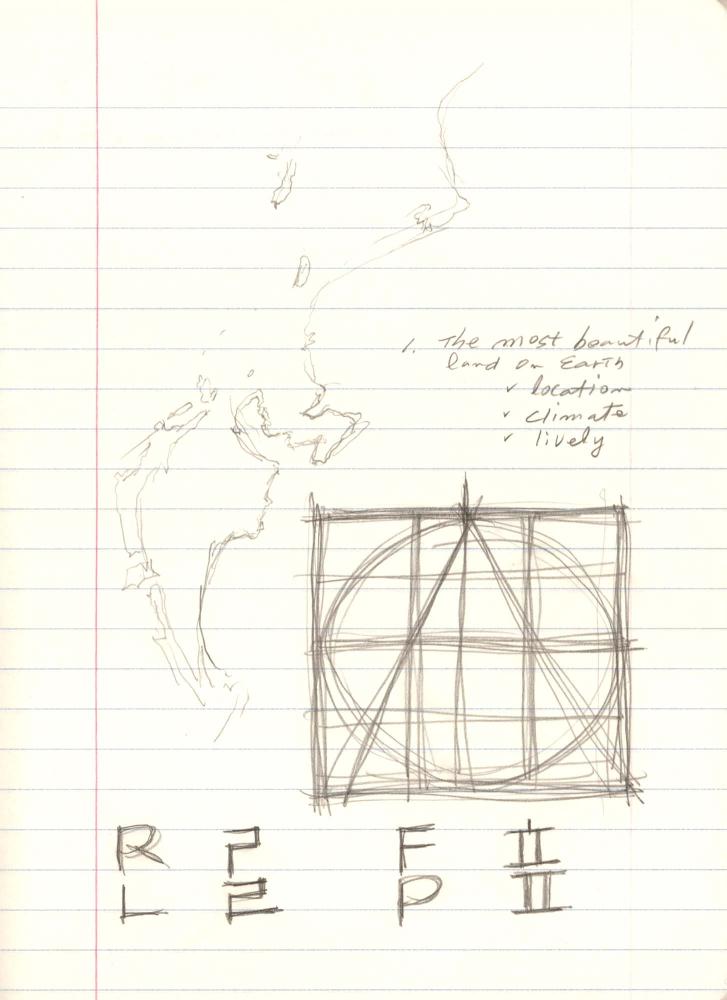 1. The most beautiful
land on Earth
✓ location
✓ climate
✓ lively
R F
L ㄹ P ㅍ